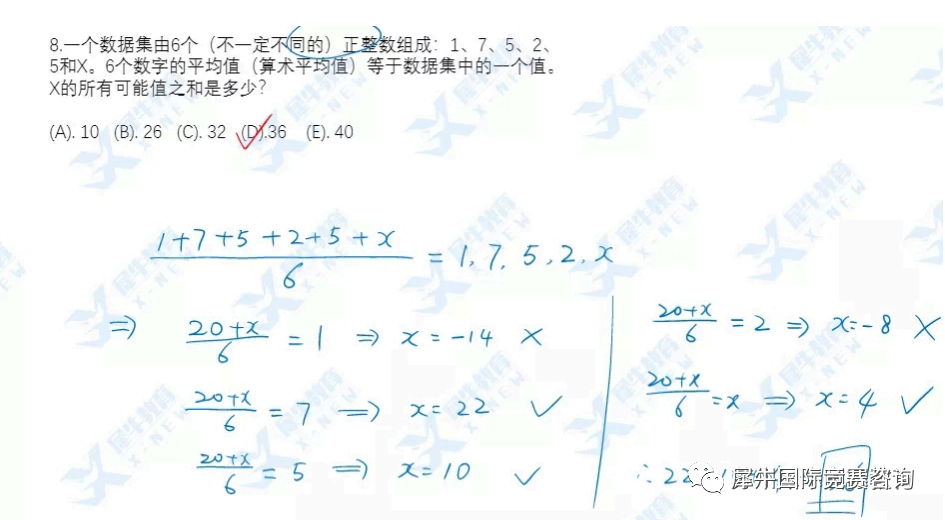 8.一个数据集由6个（不一定不同的）正整数组成：1、7、5、2、
5和X。6个数字的平均值（算术平均值）等于数据集中的一个值。
X的所有可能值之和是多少？
(A). 10 (B). 26 (C). 32 (D).36 (E). 40
(1+7+5+2+5+x)/6 = 1, 7, 5, 2, x
⇒ (20+x)/6 = 1 ⇒ x = -14 ×
(20+x)/6 = 7 ⇒ x = 22 ✓
(20+x)/6 = 5 ⇒ x = 10 ✓
(20+x)/6 = 2 ⇒ x = -8 ×
(20+x)/6 = x ⇒ x = 4 ✓
∴ 22
犀牛国际竞赛咨询
犀牛教育
X-NEW